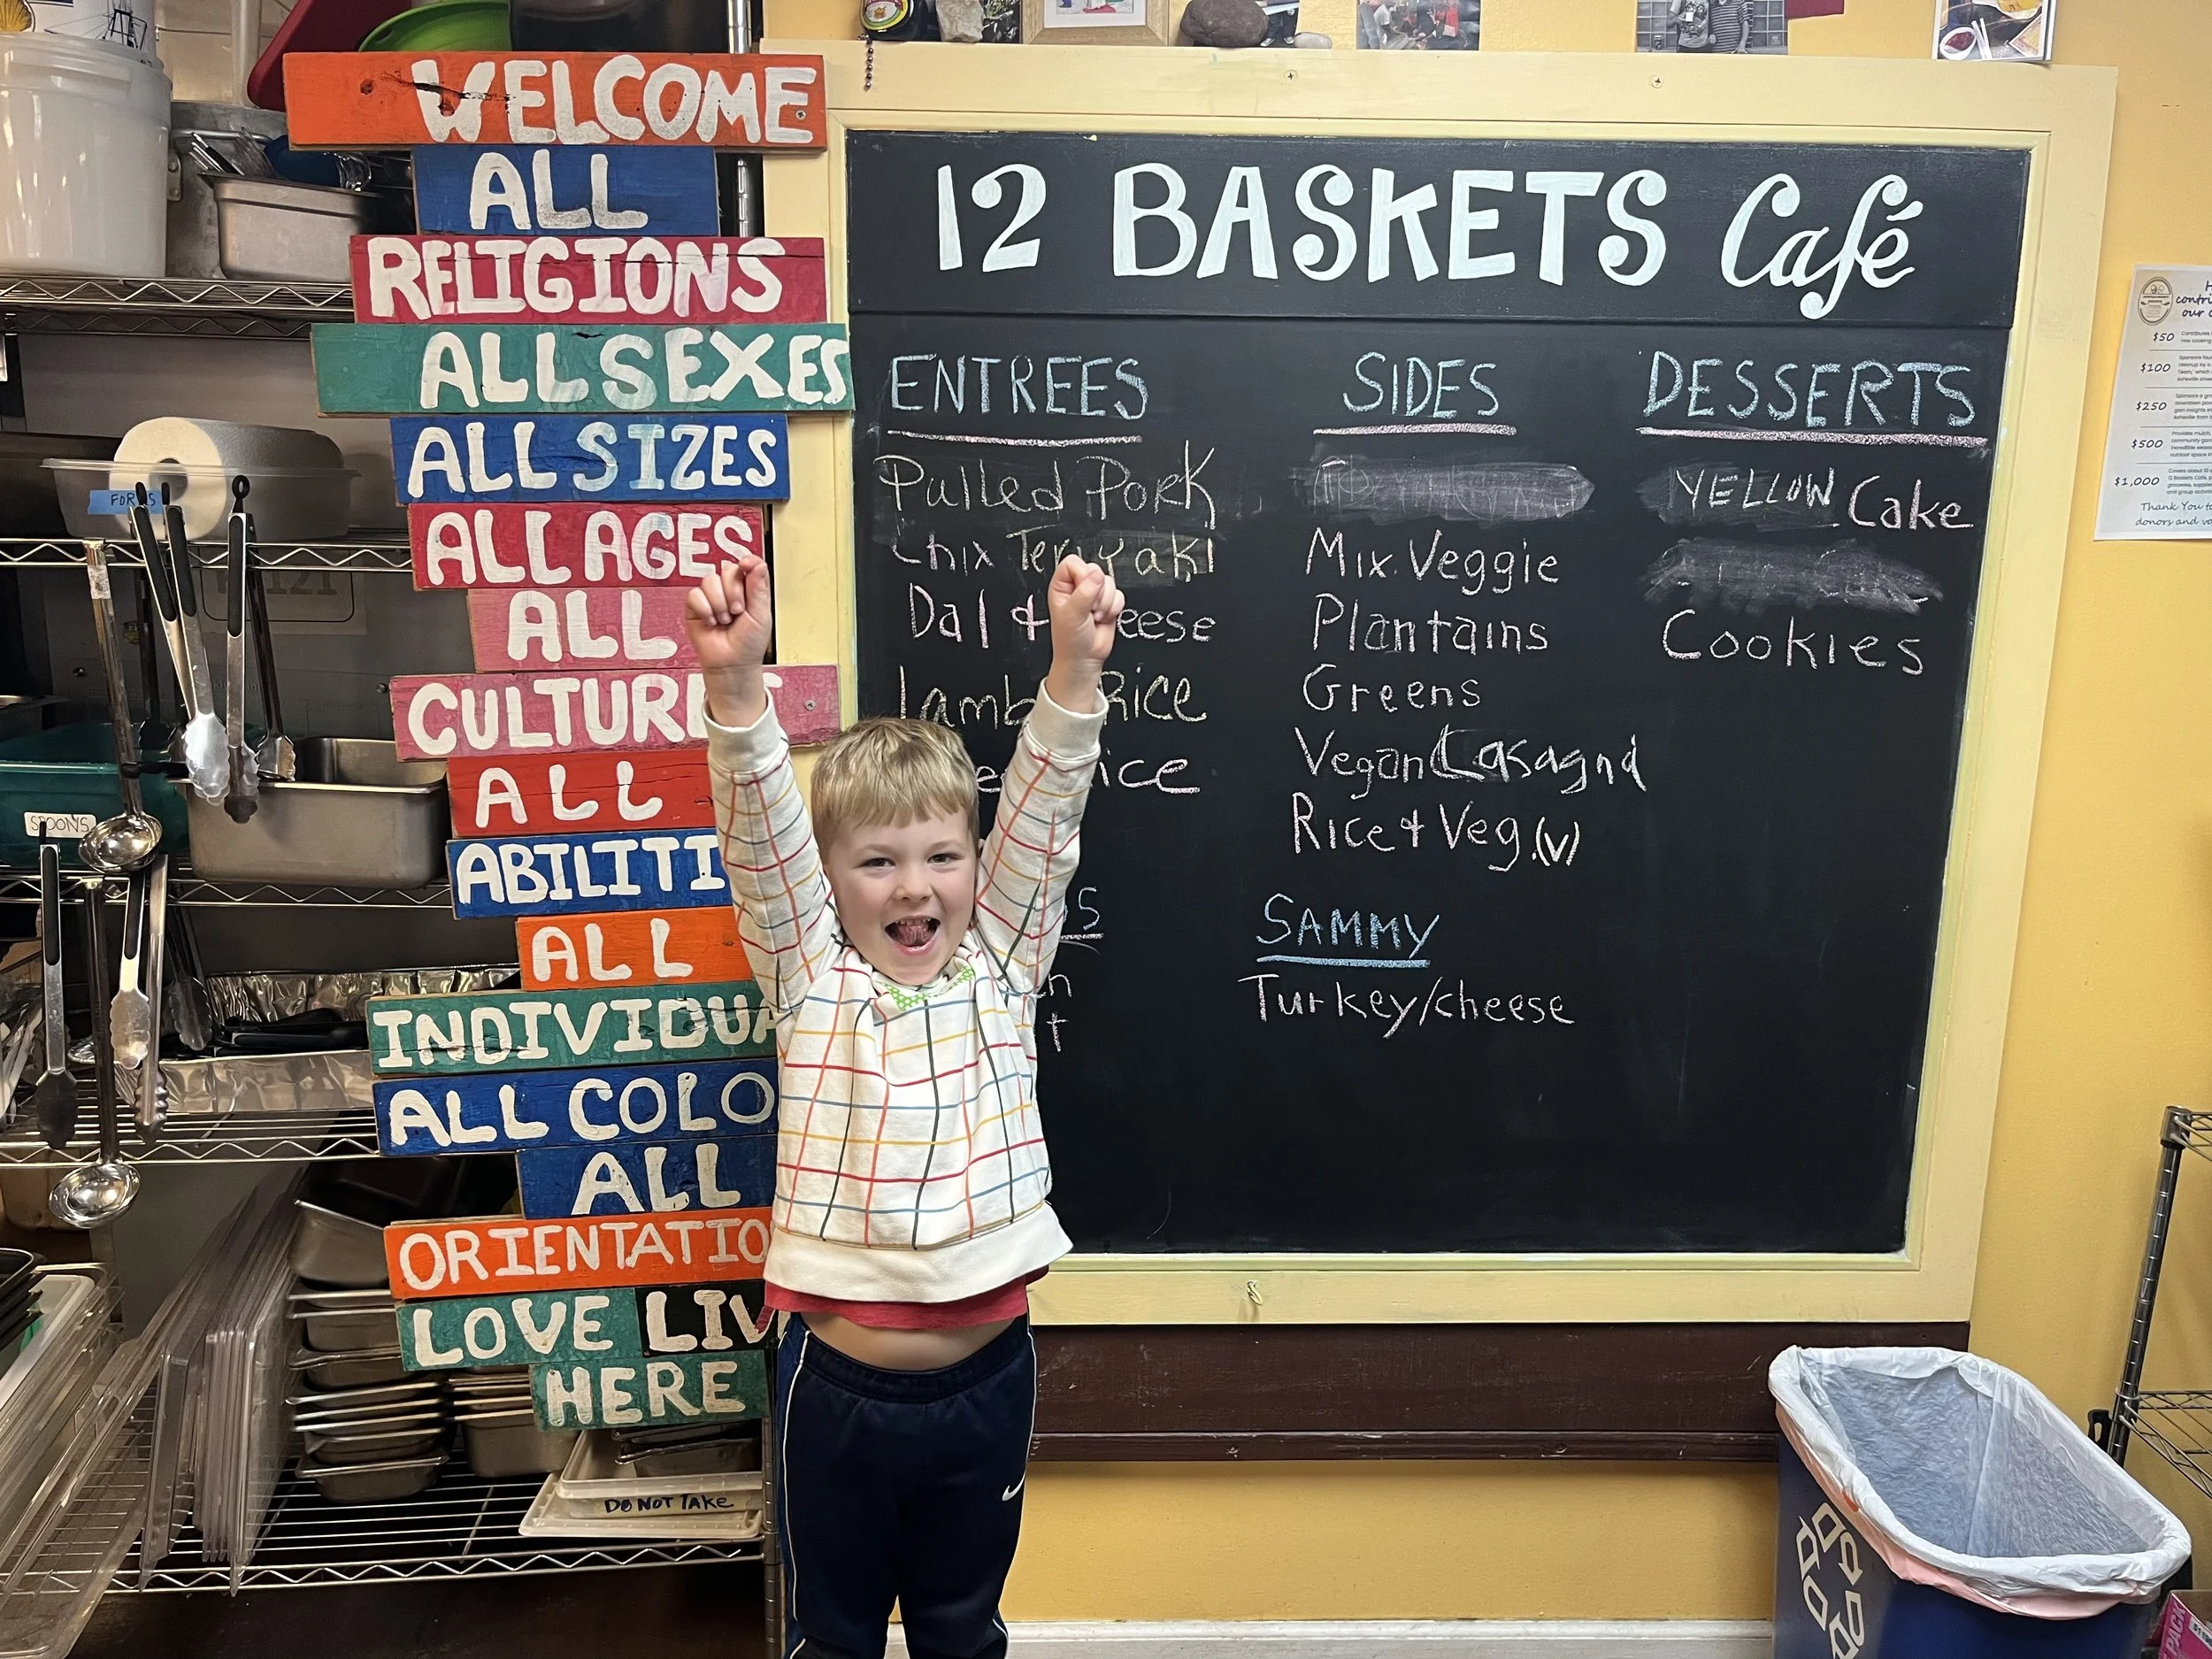 WELCOME
ALL
RELIGIONS
ALL SEXES
ALL SIZES
ALL AGES
ALL
CULTURE
ALL
ABILITI
ALL
INDIVIDUA
ALL COLO
ALL
ORIENTATIO
LOVE LIV
HERE
FORKS
SPOONS
DO NOT TAKE
12 BASKETS Café
ENTREES
Pulled Pork
Chix Teriyaki
Dal + eese
Lamb Rice
ice
SIDES
Mix. Veggie
Plantains
Greens
Vegan Lasagna
Rice + Veg. (v)
SAMMY
Turkey/cheese
DESSERTS
YELLOW Cake
Cookies
$50
$100
$250
$500
$1,000
Thank You to
donors and vo
PACK